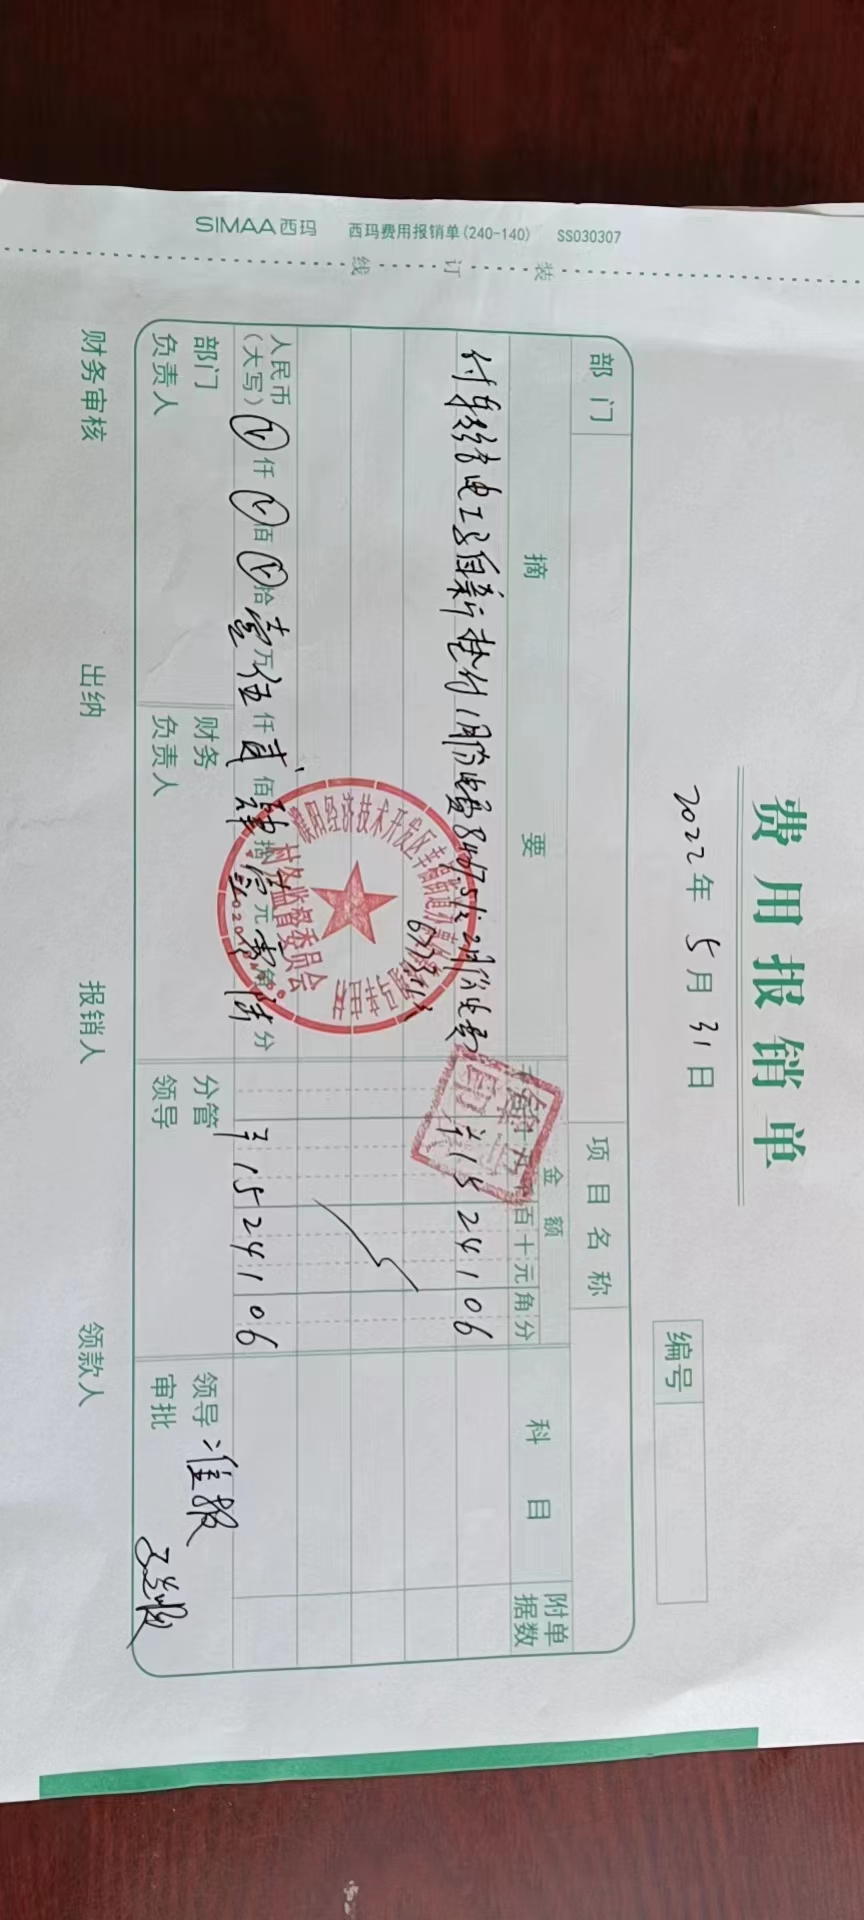 SIMAA西玛 西玛费用报销单(240-140) SS030307
装 订 线
费用报销单
2022年 5月 31日
编号
部门
项目名称
摘 要
金 额
科 目
附单据数
百十元角分
电工 自新 垫付1月份电费8467.51 2月份电费
¥15241.06
人民币(大写) 仟 佰 拾 壹万 伍仟 贰佰 肆拾 元 零角 陆分
¥15241.06
部门负责人
财务负责人
分管领导
领导审批 准报
财务审核
出纳
报销人
领款人
经济技术开发区
村务监督委员会
印